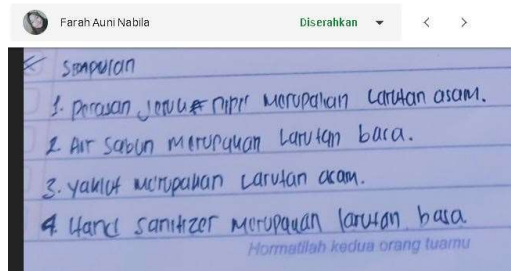 Farah Auni Nabila
Diserahkan
Simpulan
1. Perasan Jeruk nipis merupakan Larutan asam.
2. Air Sabun merupakan Larutan basa.
3. Yakult merupakan Larutan asam.
4. Hand sanitizer merupakan larutan basa.
Hormatilah kedua orang tuamu